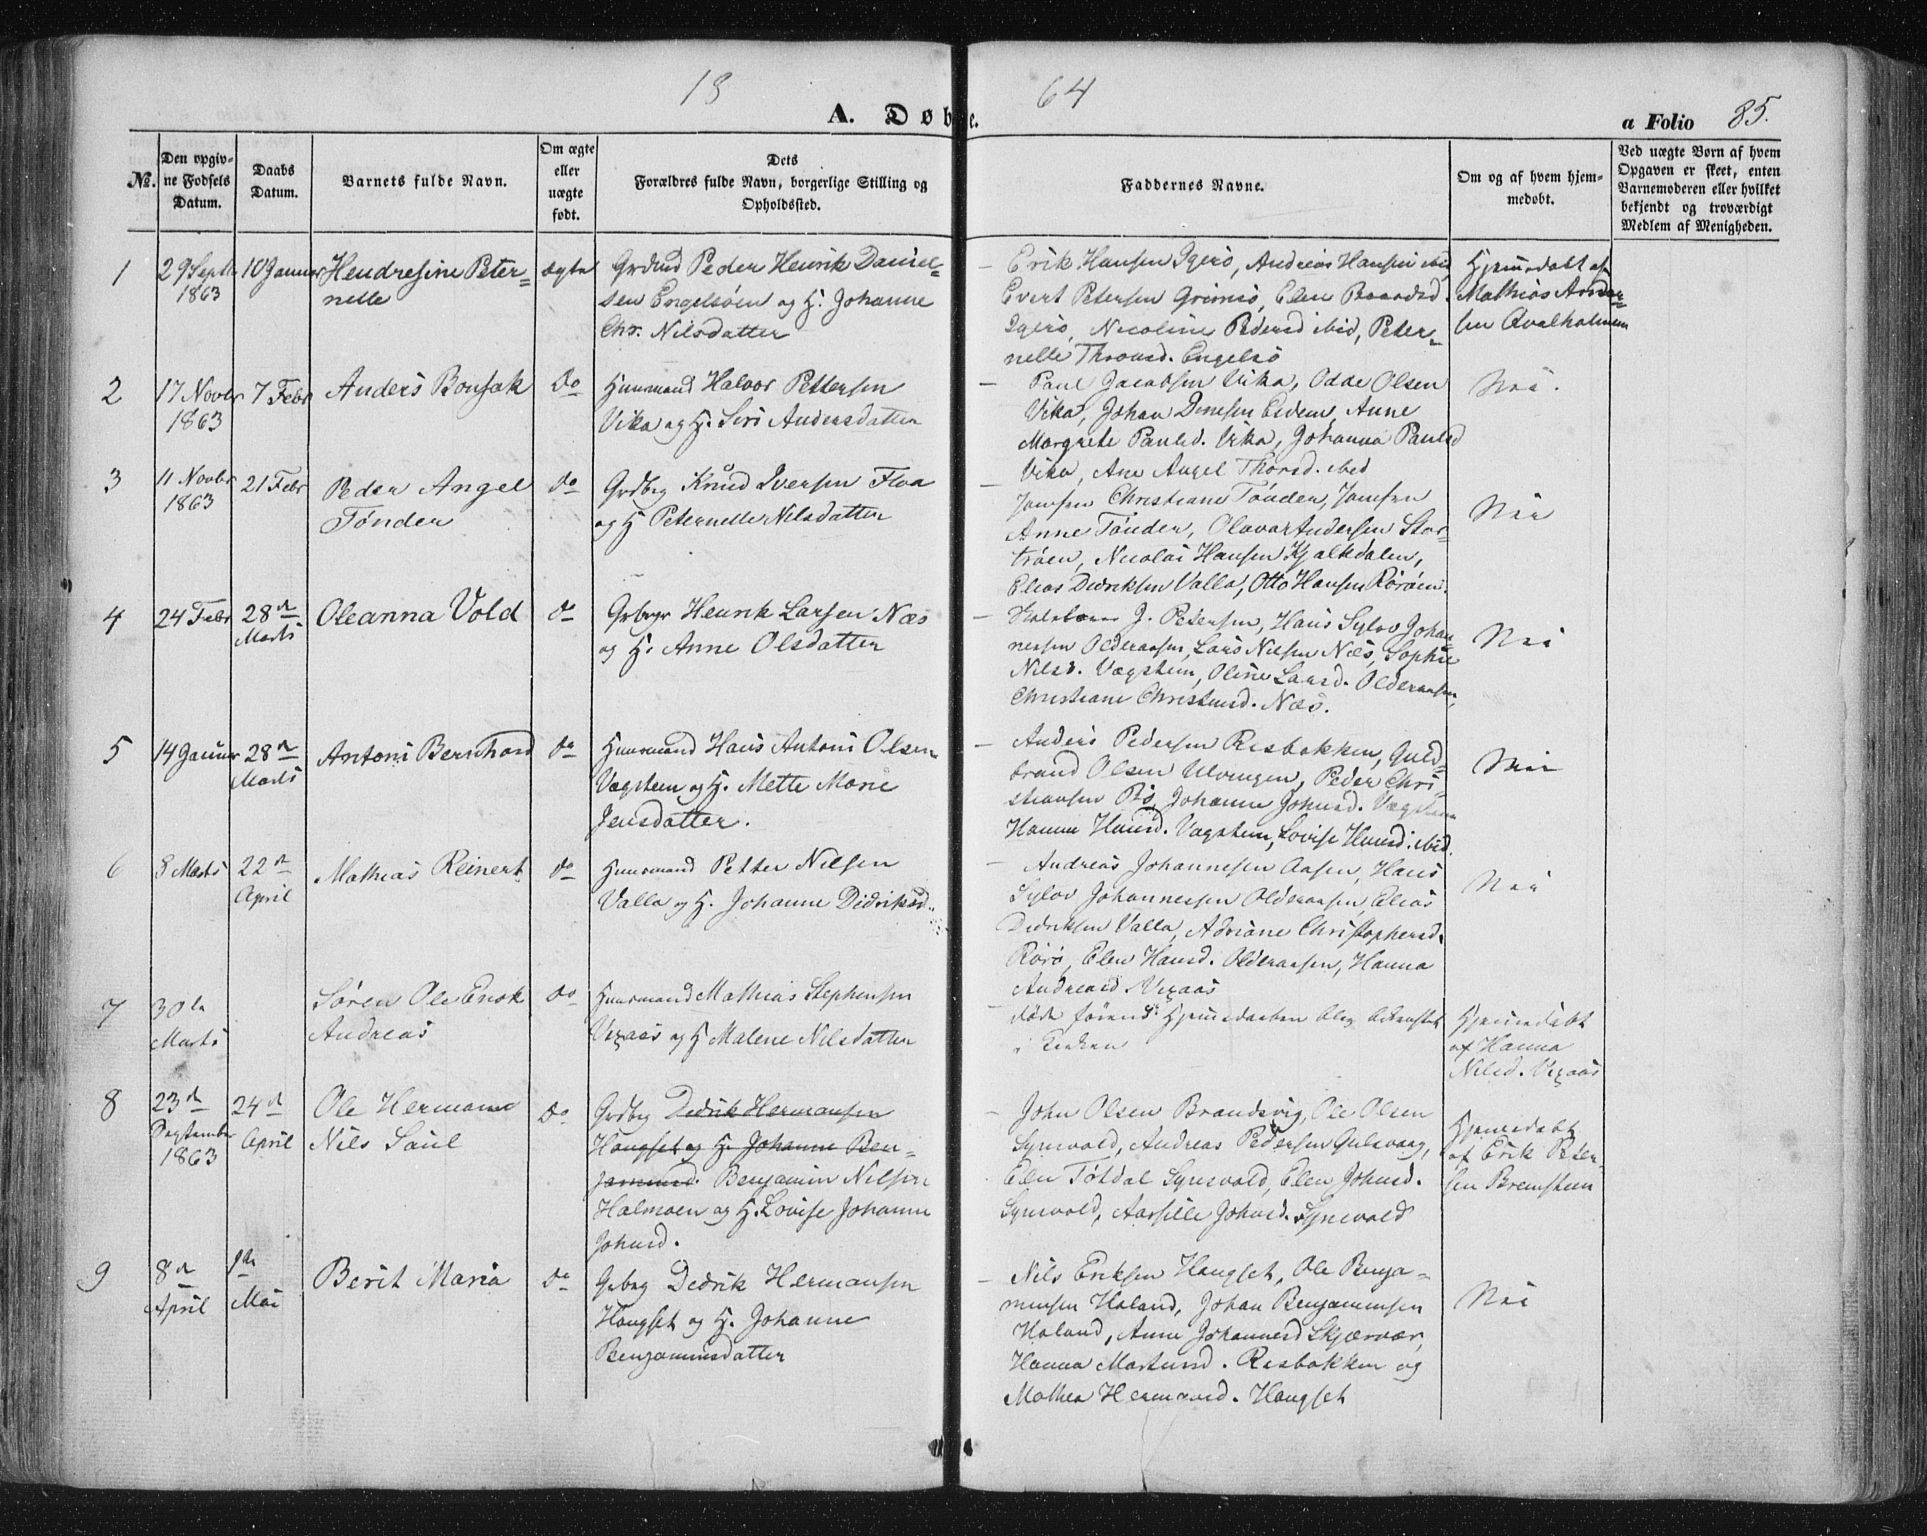 18 64
A. Døbte.
a Folio 85.
No.
Den opgiv-
ne Fødsels
Datum.
Daabs
Datum.
Barnets fulde Navn.
Om ægte
eller
uægte
født.
Dets
Forældres fulde Navn, borgerlige Stilling og
Opholdssted.
Faddernes Navne.
Om og af hvem hjem-
medøbt.
Ved uægte Børn af hvem
Opgaven er skeet, enten
Barnemoderen eller hvilket
bekjendt og troværdigt
Medlem af Menigheden.
1
29 Septb
1863
10 Januar
Hendresine Peter-
nelle
ægte
Peder Henrik Daniel-
sen Engelsöen og H. Johanne
Chr. Nilsdatter
Erik Hansen Igerö, Andreas Hansen ibid
Evert Petersen Grimsö, Elen Baardsd.
Igerö, Nicoline Pedersd ibid, Peter-
nelle Thronsd. Engelsö
Hjemmedøbt af
Mathias Ander-
sen Qvalholmen
2
17 Novbr
1863
7 Febr
Anders Bonsak
do
Huusmand Halvor Pettersen
Vika og H. Siri Andersdatter
Paul Jacobsen Vika, Odde Olsen
Vika, Johan Densen, Anne
Margrete Paulsd. Vika, Johanna Paulsd
Vika, Ane Angel Thorsd. ibid
Nei.
3
11 Novbr
1863
21 Febr
Peder Angel
Tönder
do
Grdbrg Knud Iversen Floa
og H Peternelle Nilsdatter
Jomfru Christiane Tönder, Jomfru
Anne Tönder, Olavar Andersen Stor-
tröen, Nicolai Hansen Kjalkdalen,
Elias Dedriksen Valla, Otto Hansen Röröen.
Nei
4
24 Febr
28de
Marts
Oleanna Vold
do
Henrik Larsen Næs
og H. Anne Olsdatter
J. Petersen, Hans Sylov Johan
nesen Olderaasen, Lars Nielsen Næs, Sophie
Nilsd. Vægstein, Oline Larsd. Olderaasen,
Christiane Christensd. Næs.
Nei
5
14 Januar
28de
Marts
Antoni Bernhard
do
Huusmand Hans Antoni Olsen
Vægstein og H. Mette Marie
Jensdatter.
Anders Pedersen Resbakken, Guld-
brand Olsen Ulvingen, Peder Chri-
stiansen Bö, Johanne Johnsd. Vægstein
Hanna Hansd. Vægstein, Lovise Hansd. ibid.
Nei
6
8 Marts
22de
April
Mathias Reinert
do
Huusmand Petter Nilsen
Valla og H. Johanne Didriksd.
Andreas Johannesen Aasen, Hans
Sylov Johannessen Olderaasen, Elias
Dedriksen Valla, Adriane Christophersd.
Rörö, Elen Hansd. Olderaasen, Hanna
Andreasd Vexaas
Nei
7
30te
Marts
Sören Ole Enok
Andreas
do
Huusmand Mathias Stephensen
Vexaas og H Malene Nilsdatter
døde förend Hjemmedaaben blev bekræftet
i Kirken
Hjemmedøbt
af Hanna
Nilsd. Vexaas
8
23de
September
1863
24de
April
Ole Hermann
Nils Saul
do
Grdbrg Dedrik Hermansen
Haugset og H. Johanne Ben-
jaminsd. Benjamin Nilsen
Halmoen og H. Lovise Johanne
Johnsd.
John Olsen Brandsvig, Ole Olsen
Synsvold, Andreas Pedersen Gulsvaag,
Elen Totdal Synsvold, Elen Johnsd.
Synsvold, Aarsille Johnsd. Synsvold
Hjemmedøbt
af Erik Peter-
sen Bremstein
9
8de
April
1ste
Mai
Berit Maria
do
Dedrik Hermansen
Haugset og H. Johanne
Benjaminsdatter
Nils Eriksen Haugset, Ole Benja-
minsen Haland, Johan Benjaminsen
Haland, Anne Johannesd Skjærvær,
Hanna Martinsd. Resbakken og
Mathea Hermansd. Haugset
Nei